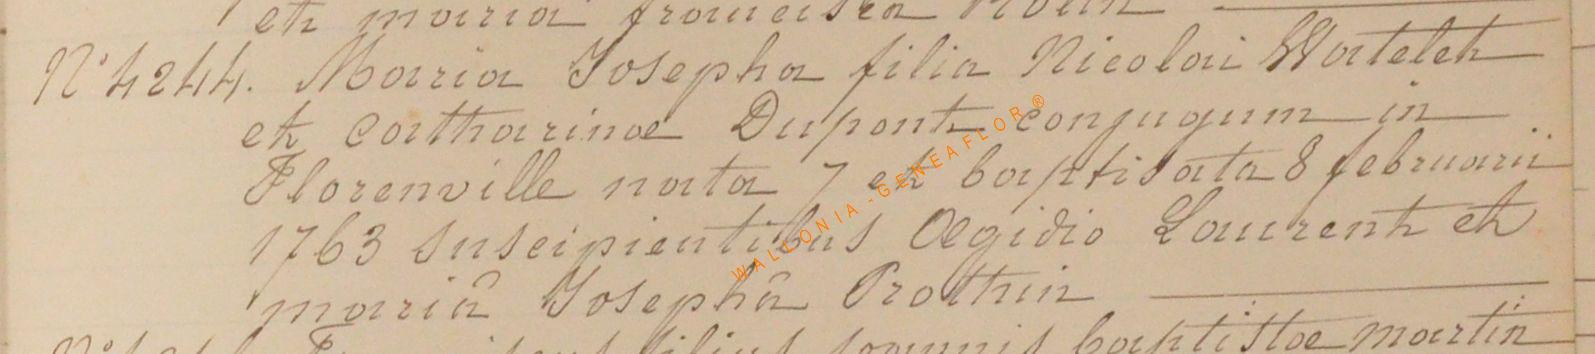 et maria francisca
N° 4244. Maria Josepha filia Nicolai Watelet
et Catharinae Dupont conjugum in
Florenville nata 7 et baptisata 8 februarii
1763 suscipientibus Œgidio Laurent et
mariâ Josephâ Prothin
filius joannis baptistae martin
WALLONIA - GENEAFLOR ®